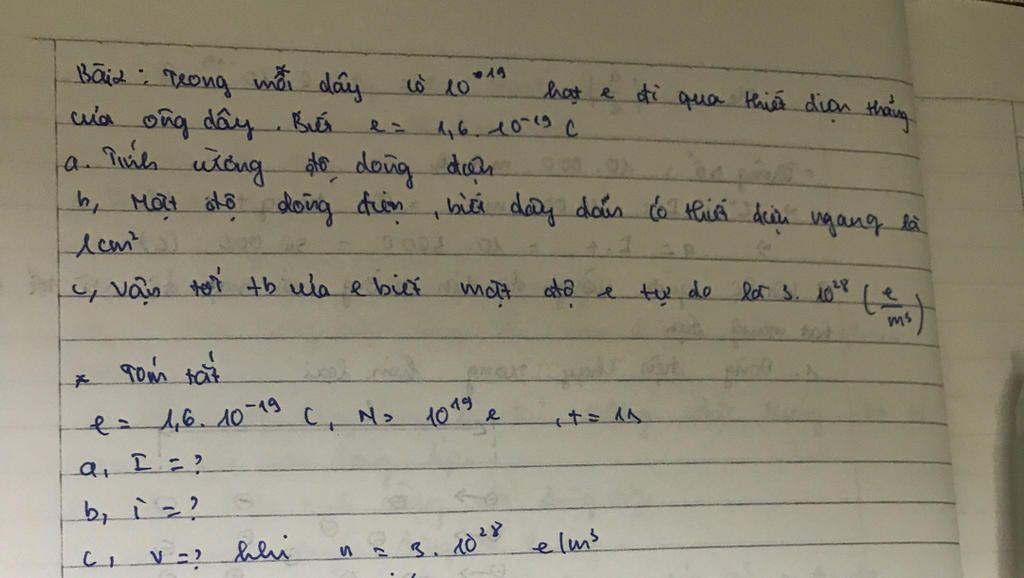 Bài 2 : Trong mỗi dây có 10⁻¹⁹ hạt e đi qua thiết diện thẳng
của ống dây . Biết e = 1,6 . 10⁻¹⁹ C
a. Tính cường độ dòng điện
b, Mật độ dòng điện , biết dây dẫn có thiết diện ngang là
1cm²
c, Vận tốc tb của e biết mật độ e tự do là 3 . 10²⁸ (e/m³)
* Tóm tắt
e = 1,6 . 10⁻¹⁹ C , N = 10¹⁹ e , t = 1s
a, I = ?
b, i = ?
c, v = ? khi n = 3 . 10²⁸ e/m³